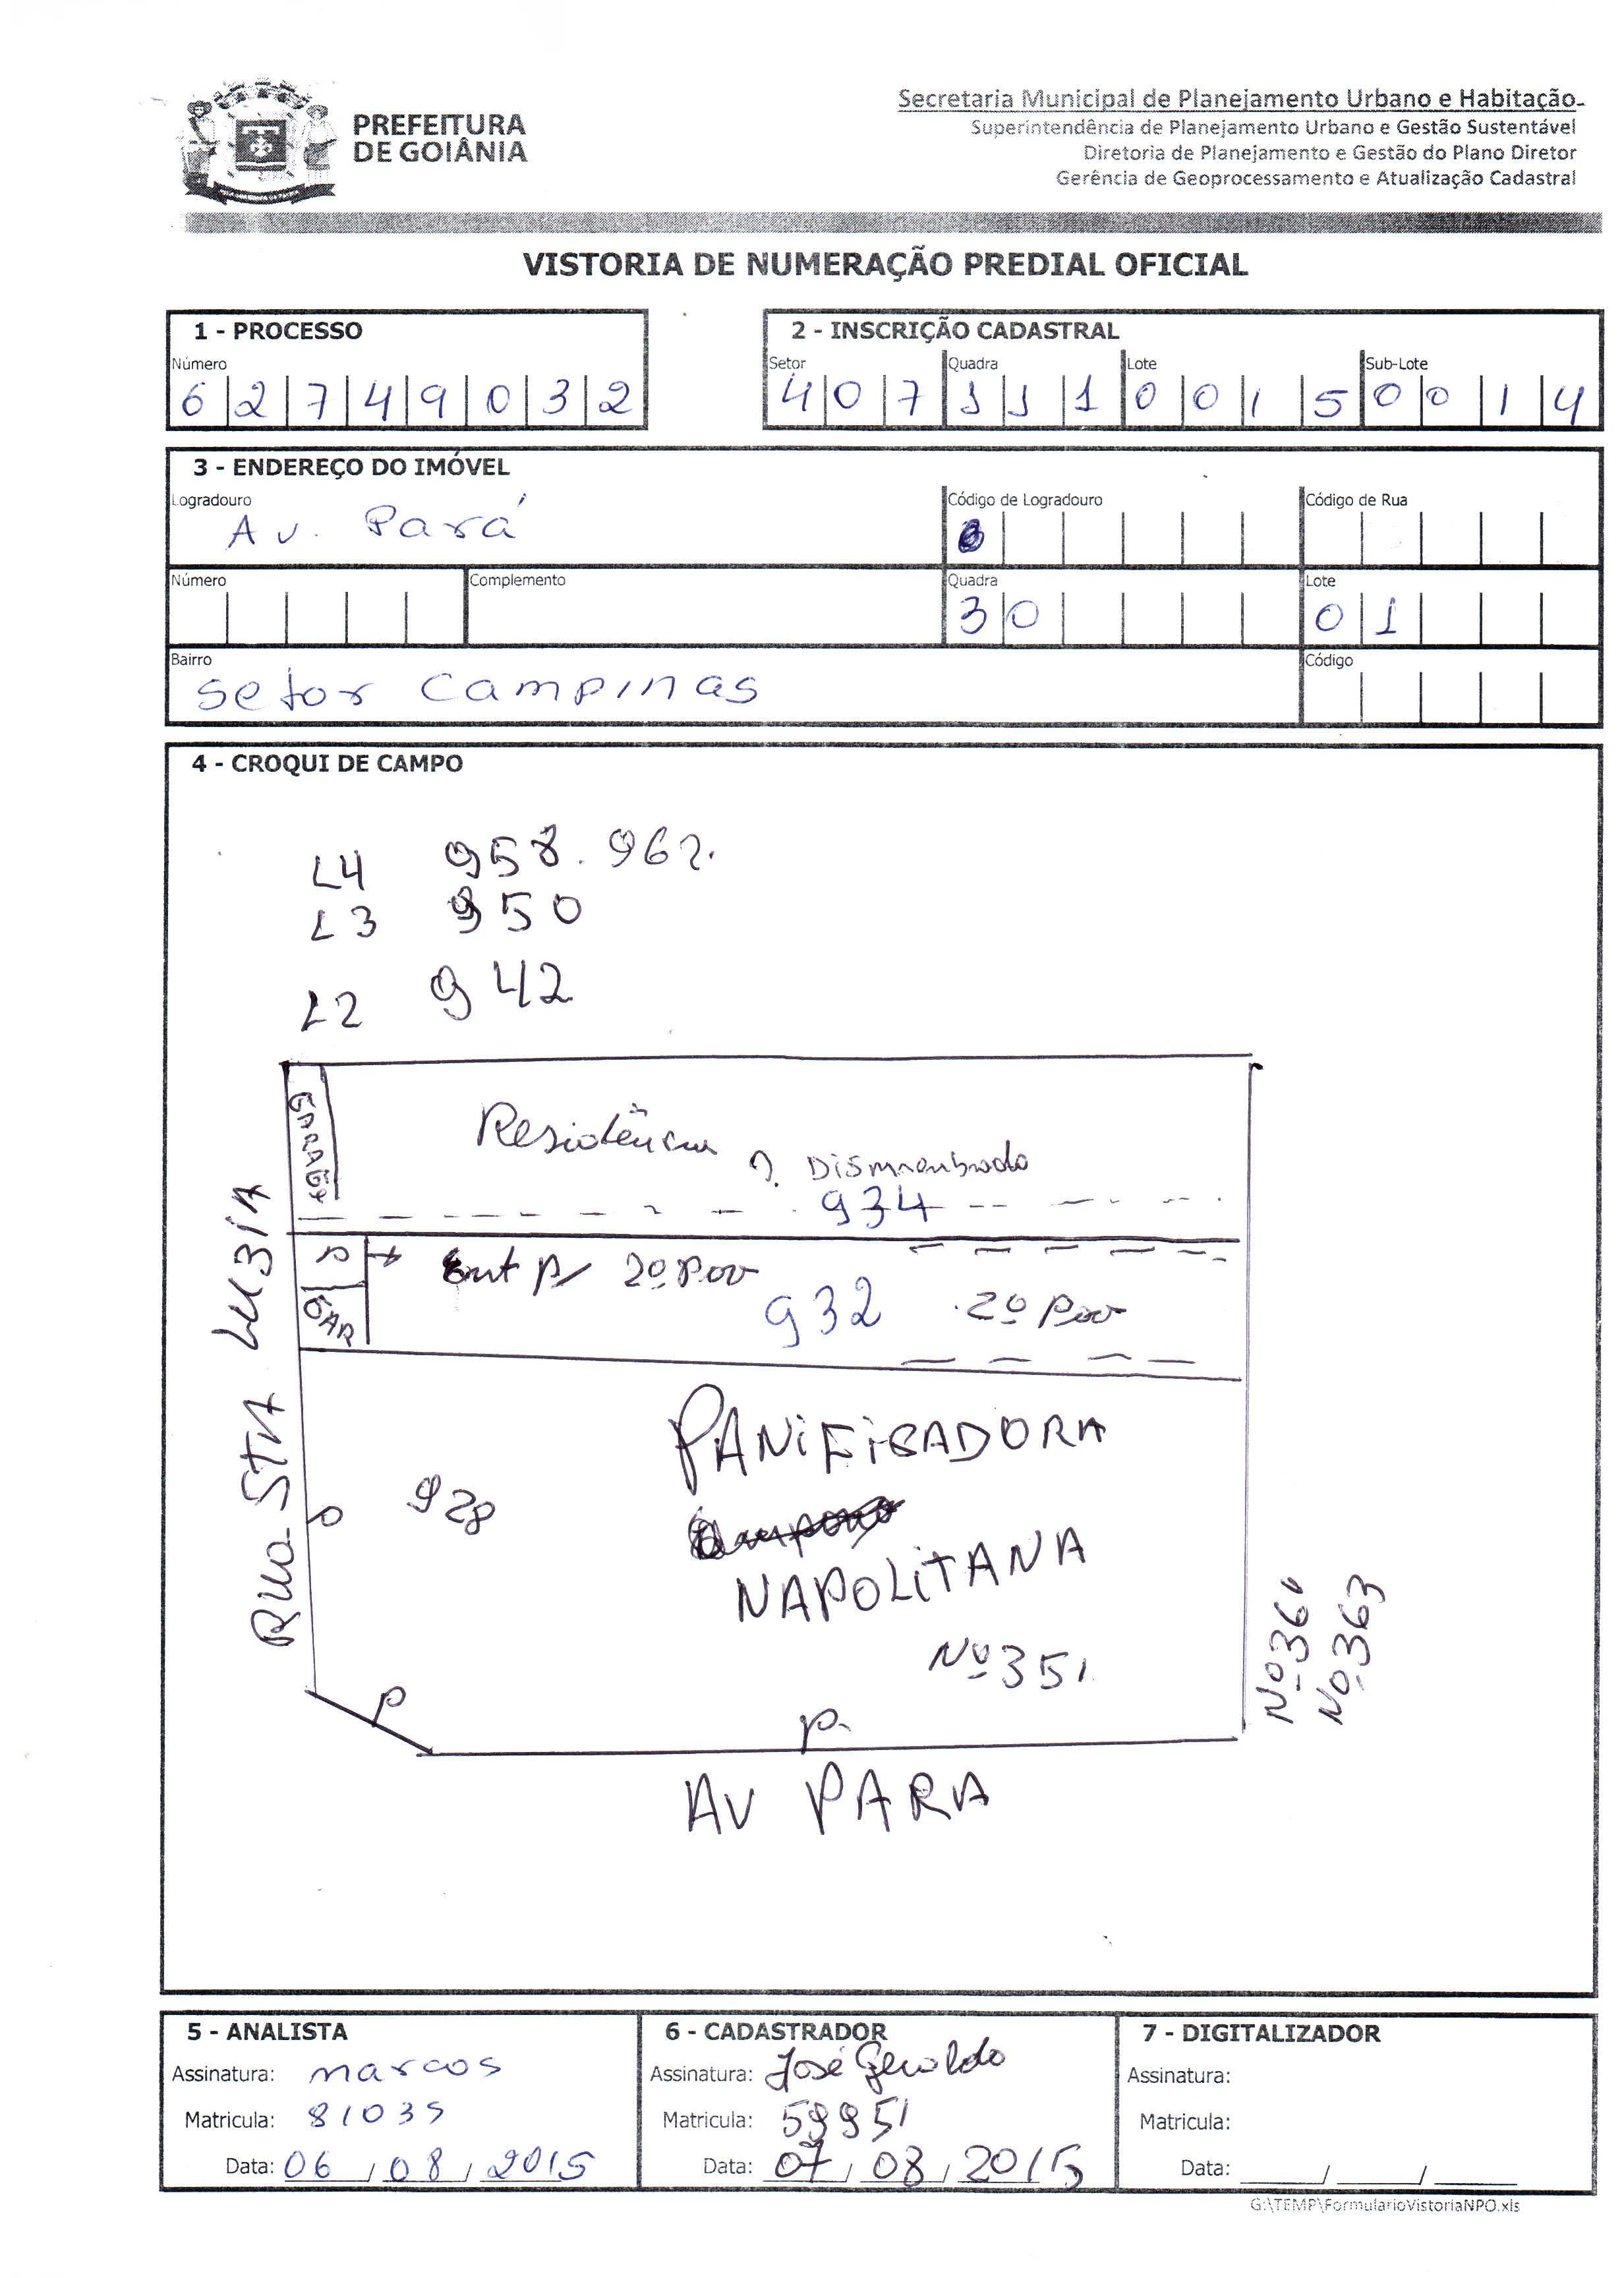 PREFEITURA
DE GOIÂNIA
Secretaria Municipal de Planejamento Urbano e Habitação
Superintendência de Planejamento Urbano e Gestão Sustentável
Diretoria de Planejamento e Gestão do Plano Diretor
Gerência de Geoprocessamento e Atualização Cadastral
VISTORIA DE NUMERAÇÃO PREDIAL OFICIAL
1 - PROCESSO
Número
6 2 7 4 9 0 3 2
2 - INSCRIÇÃO CADASTRAL
Setor Quadra Lote Sub-Lote
4 0 7 1 1 1 0 0 1 5 0 0 1 4
3 - ENDEREÇO DO IMÓVEL
Logradouro Código de Logradouro Código de Rua
Av. Pará
Número Complemento Quadra Lote
30 01
Bairro Código
Setor Campinas
4 - CROQUI DE CAMPO
L4 958. 962.
L3 950
L2 942
GARAGE
Residência
?. Dismembrado
934
P
Ent p/ 2º Pav
GAR
932
2º Pav
RUA STA LUZIA
PANIFICADORA
928
P
NAPOLITANA
Nº 351.
Nº 361
Nº 363
P
P.
AV PARA
5 - ANALISTA
Assinatura: marcos
Matricula: 81035
Data: 06 / 08 / 2015
6 - CADASTRADOR
Assinatura: José Geraldo
Matricula: 59951
Data: 07 / 08 / 2015
7 - DIGITALIZADOR
Assinatura:
Matricula:
Data: ______/______/______
G:\TEMP\FormularioVistoriaNPO.xls